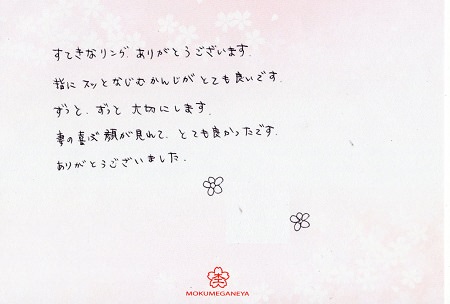 すてきなリング、ありがとうございます.
指に スッとなじむかんじが とても良いです.
ずっと、ずっと 大切にします.
妻の喜ぶ顔が見れて、とても良かったです.
ありがとうございました.
MOKUMEGANEYA